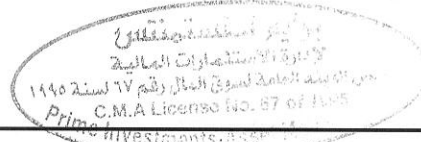 برايم انفستمنتس
لإدارة الاستثمارات المالية
العامة لسوق المال رقم ٦٧ لسنة ١٩٩٥
C.M.A License No. 67 of 1995
Prime Investments